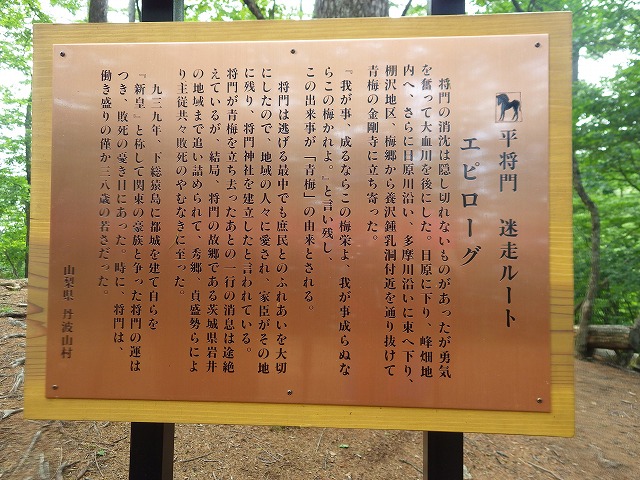 平将門 迷走ルート
エピローグ
将門の消沈は隠し切れないものがあったが勇気
を奮って大血川を後にした。日原に下り、峰畑地
内へ、さらに日原川沿い、多摩川沿いに東へ下り、
棚沢地区、梅郷から養沢鍾乳洞付近を通り抜けて
青梅の金剛寺に立ち寄った。
『我が事、成るならこの梅栄よ、我が事成らぬな
らこの梅かれよ。』と言い残し、
この出来事が「青梅」の由来とされる。
将門は逃げる最中でも庶民とのふれあいを大切
にしたので、地域の人々に愛され、家臣がその地
に残り、将門神社を建立したと言われている。
将門が青梅を立ち去ったあとの一行の消息は途絶
えているが、結局、将門の故郷である茨城県岩井
の地域まで追い詰められて、秀郷、貞盛勢らによ
り主従共々敗死のやむなきに至った。
九三九年、下総猿島に都城を建て自らを
『新皇』と称して関東の豪族と争った将門の運は
つき、敗死の憂き目にあった。時に、将門は、
働き盛りの僅か三八歳の若さだった。
山梨県 丹波山村